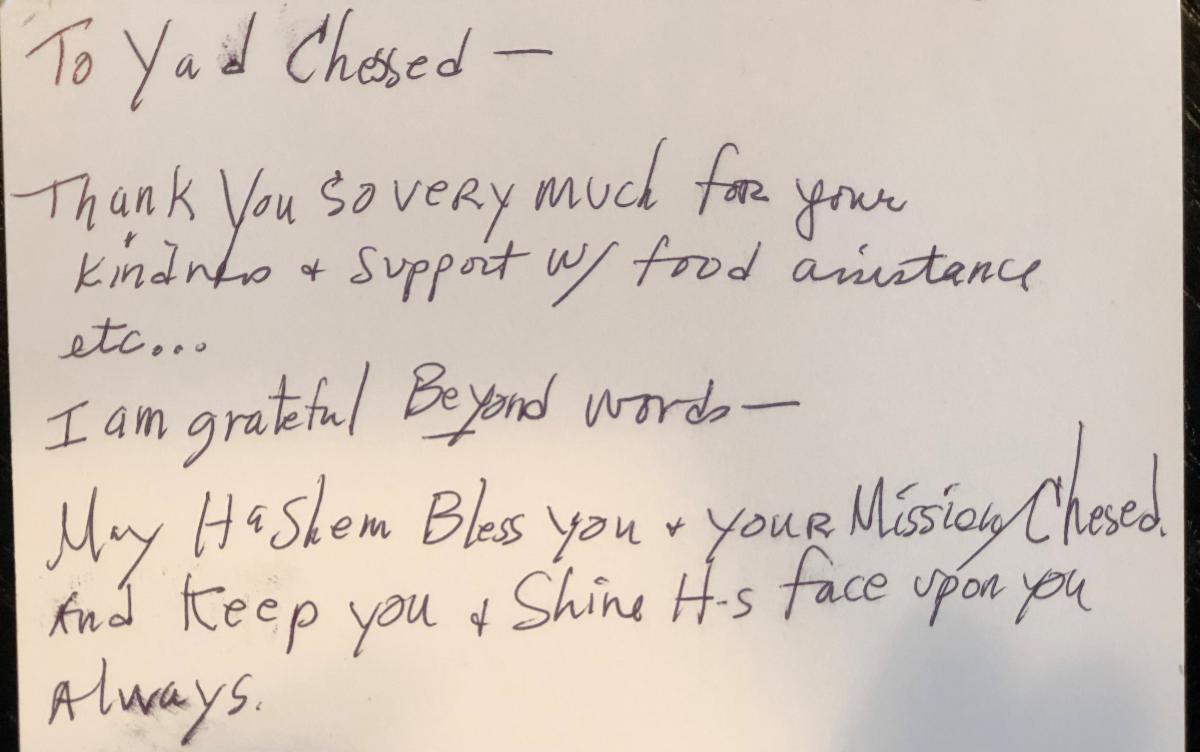 To Yad Chessed —
Thank You so very much for your
kindness & support w/ food assistance
etc...
I am grateful Beyond words —
May HaShem Bless you & your Mission/Chesed.
And Keep you & Shine H-s face upon you
Always.